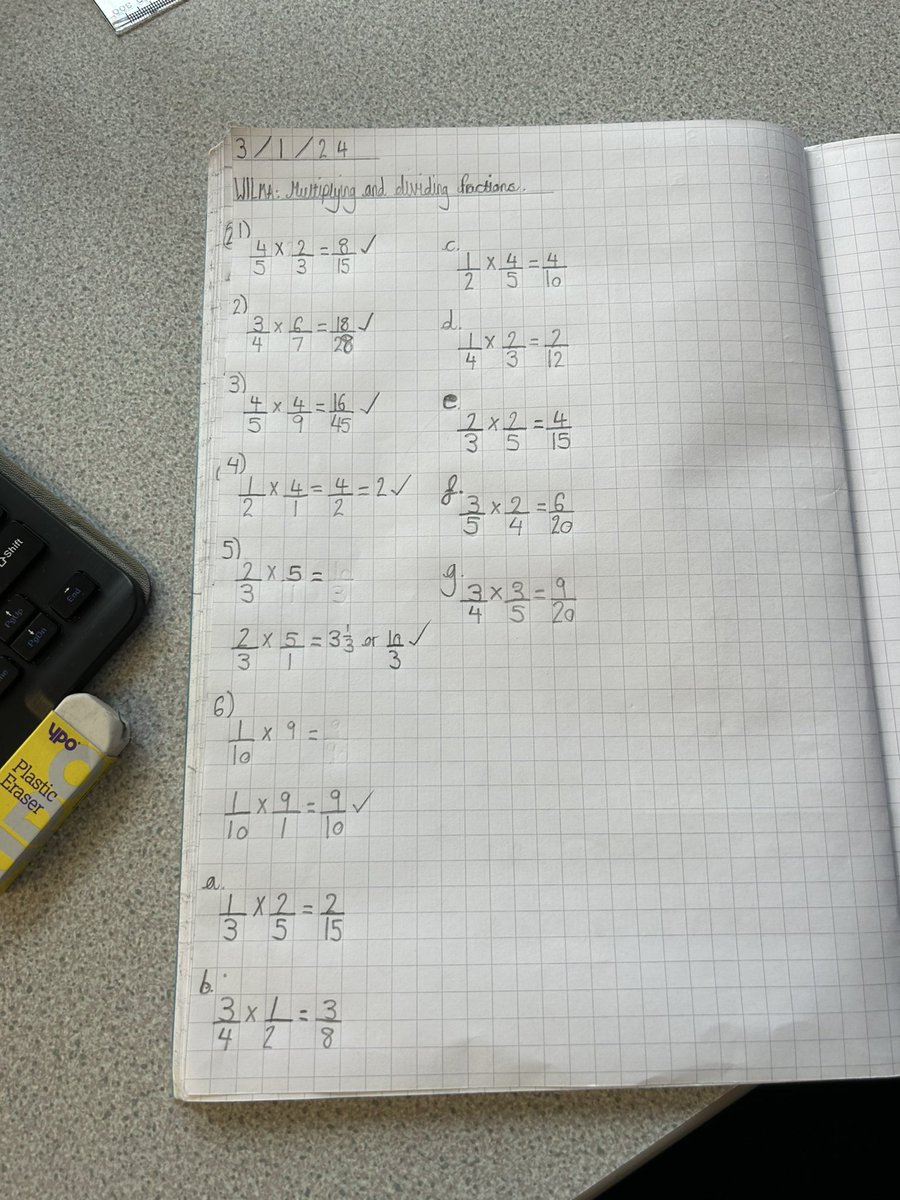 3/1/24
WILMA: Multiplying and dividing fractions.
1) 4/5 × 2/3 = 8/15 ✓
2) 3/4 × 6/7 = 18/28 ✓
3) 4/5 × 4/9 = 16/45 ✓
4) 1/2 × 4/1 = 4/2 = 2 ✓
5) 2/3 × 5 =
2/3 × 5/1 = 3 1/3 or 10/3 ✓
6) 1/10 × 9 =
1/10 × 9/1 = 9/10 ✓
a. 1/3 × 2/5 = 2/15
b. 3/4 × 1/2 = 3/8
c. 1/2 × 4/5 = 4/10
d. 1/4 × 2/3 = 2/12
e. 2/3 × 2/5 = 4/15
f. 3/5 × 2/4 = 6/20
g. 3/4 × 3/5 = 9/20
Shift
End
PgUp
PgDn
YPO
Plastic
Eraser